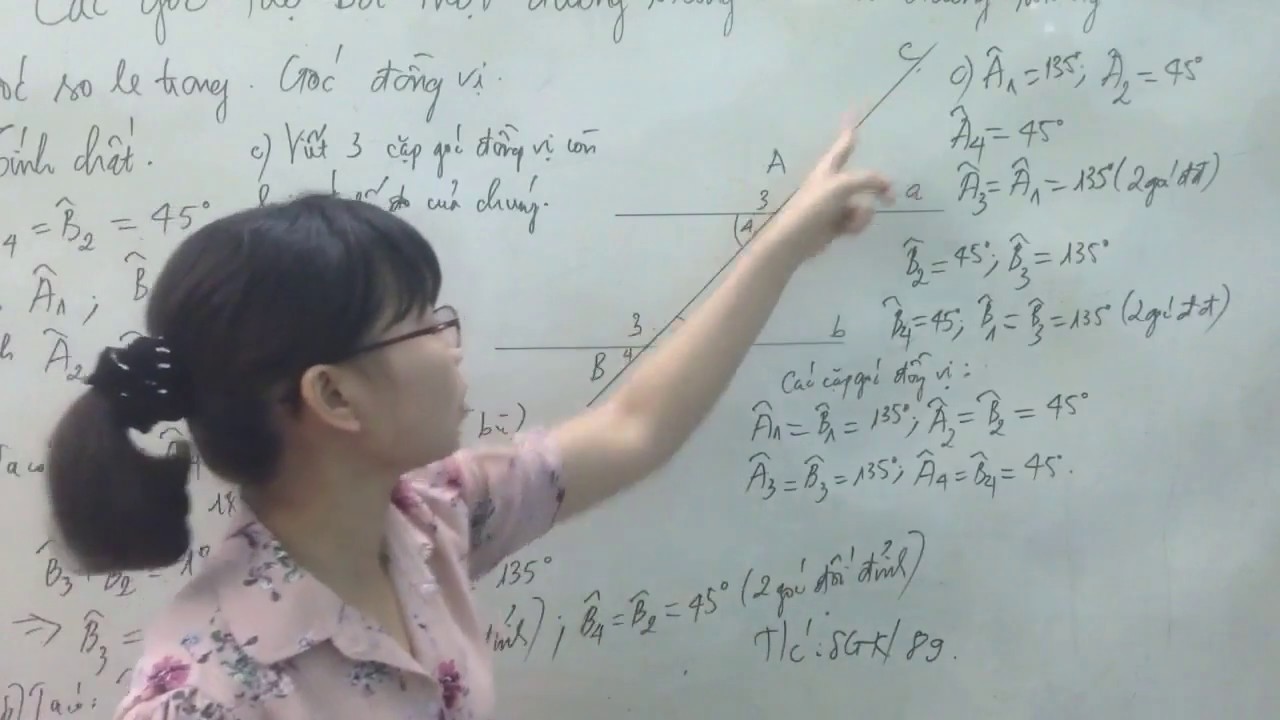 Các góc tạo bởi một đường thẳng
đường thẳng
so le trong. Góc đồng vị.
Tính chất.
c) Viết 3 cặp góc đồng vị còn
đo của chúng.
4 = B̂2 = 45°
Â1 ; B̂
Â2
bù)
18
B̂3 + B̂2 = 1
135°
⇒ B̂3 =
; B̂4 = B̂2 = 45° (2 góc đối đỉnh)
T/c: SGK/89.
b) Ta có:
C
A
3
a
4
3
b
B
4
c) Â1 = 135°; Â2 = 45°
Â4 = 45°
Â3 = Â1 = 135° (2 góc đđ)
B̂2 = 45°; B̂3 = 135°
B̂4 = 45°; B̂1 = B̂3 = 135° (2 góc đđ)
Các cặp góc đồng vị:
Â1 = B̂1 = 135°; Â2 = B̂2 = 45°
Â3 = B̂3 = 135°; Â4 = B̂4 = 45°.